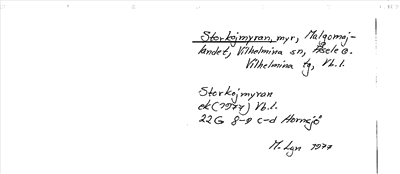 Storkojmyran, myr, Malgomaj-
landet, Vilhelmina sn, Åsele
Vilhelmina tg, Vb.l.
Storkojmyran
ek (1977) Vb.l.
22G 8-9 c-d Hornsjö
M. Lgn 1977